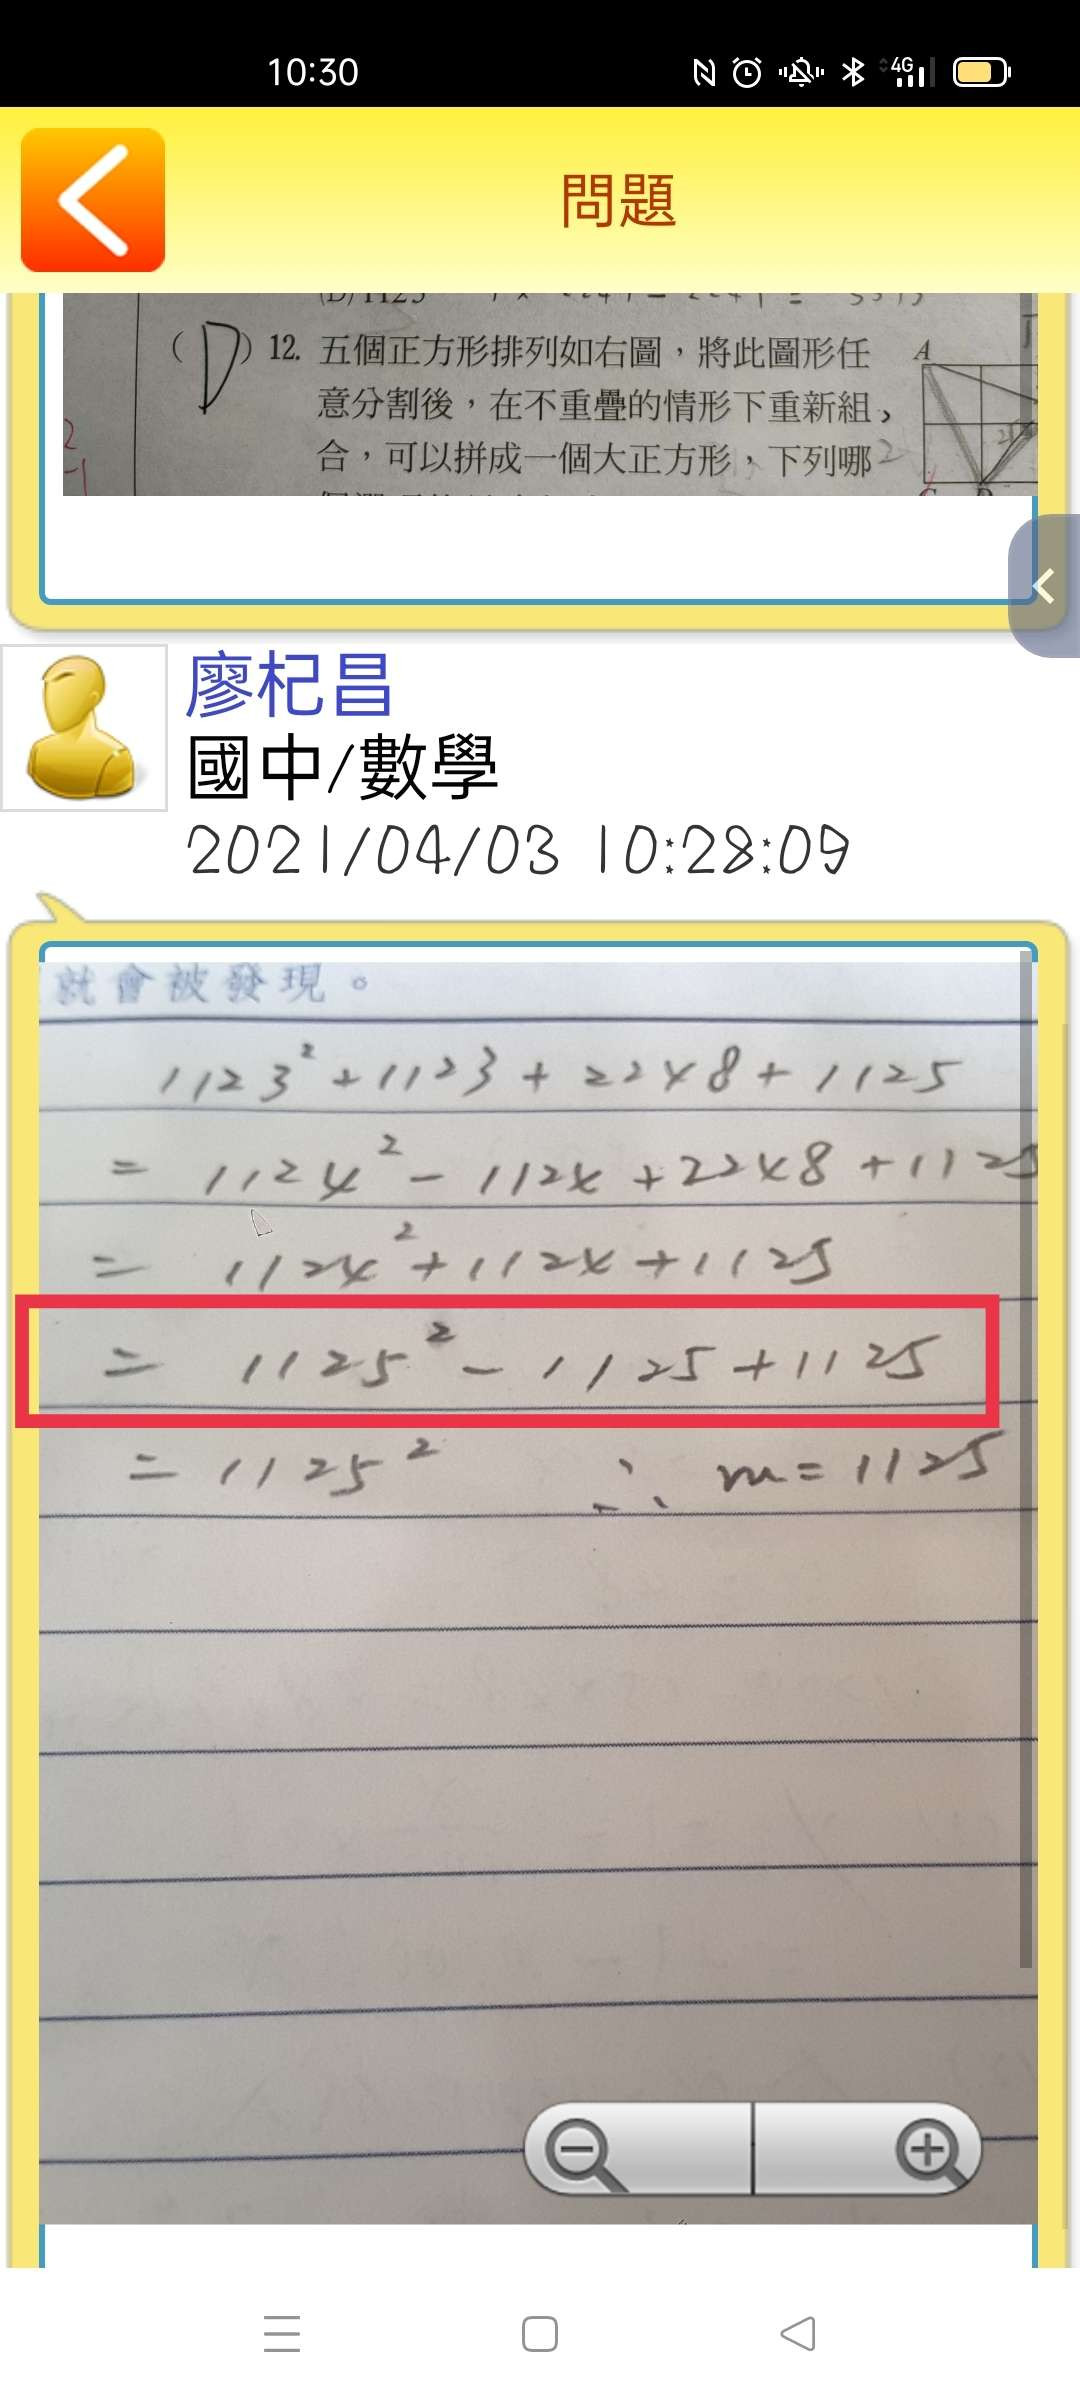 10:30
4G
問題
(D) 1125
(D) 12. 五個正方形排列如右圖,將此圖形任
A
意分割後,在不重疊的情形下重新組、
合,可以拼成一個大正方形,下列哪
廖杞昌
國中/數學
2021/04/03 10:28:09
就會被發現。
1123² + 1123 + 2248 + 1125
= 1124² - 1124 + 2248 + 1125
= 1124² + 1124 + 1125
= 1125² - 1125 + 1125
= 1125² ∴ m = 1125